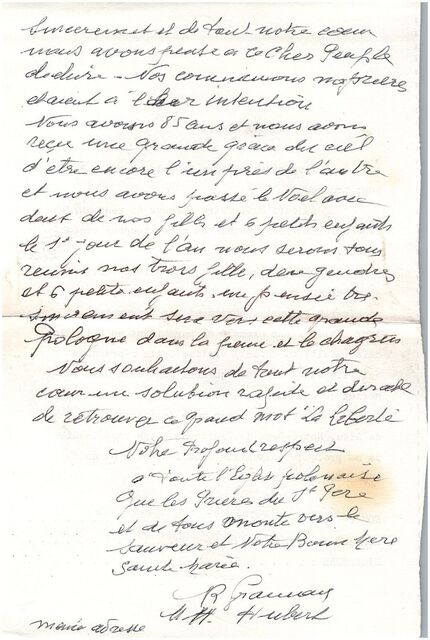 Sincerement et de tout notre cœur
nous avons pensé a ce Cher Peuple
Nos communions nos prieres
etaient à leur intention
Nous avons 85 ans et nous avons
reçu une grande grâce du ciel
d'etre encore l'un près de l'autre
et nous avons passé le Noël avec
deux de nos filles et 6 petits enfants
le 1er jour de l'an nous serons tous
reunis nos trois fille, deux gendres
et 6 petits enfants. une pensée tres
sincerement sera vers cette grande
Pologne dans la peine et le chagrin
Nous souhaitons de tout notre
cœur une solution rapide et durable
de retrouver ce grand mot "La liberté
Notre Profond respect
a toute l'Eglise polonaise
Que les Prieres du St Pere
et de tous monte vers le
Sauveur et Notre Bonne Mere
Sainte Marie.
R
M H. Hubert
même adresse